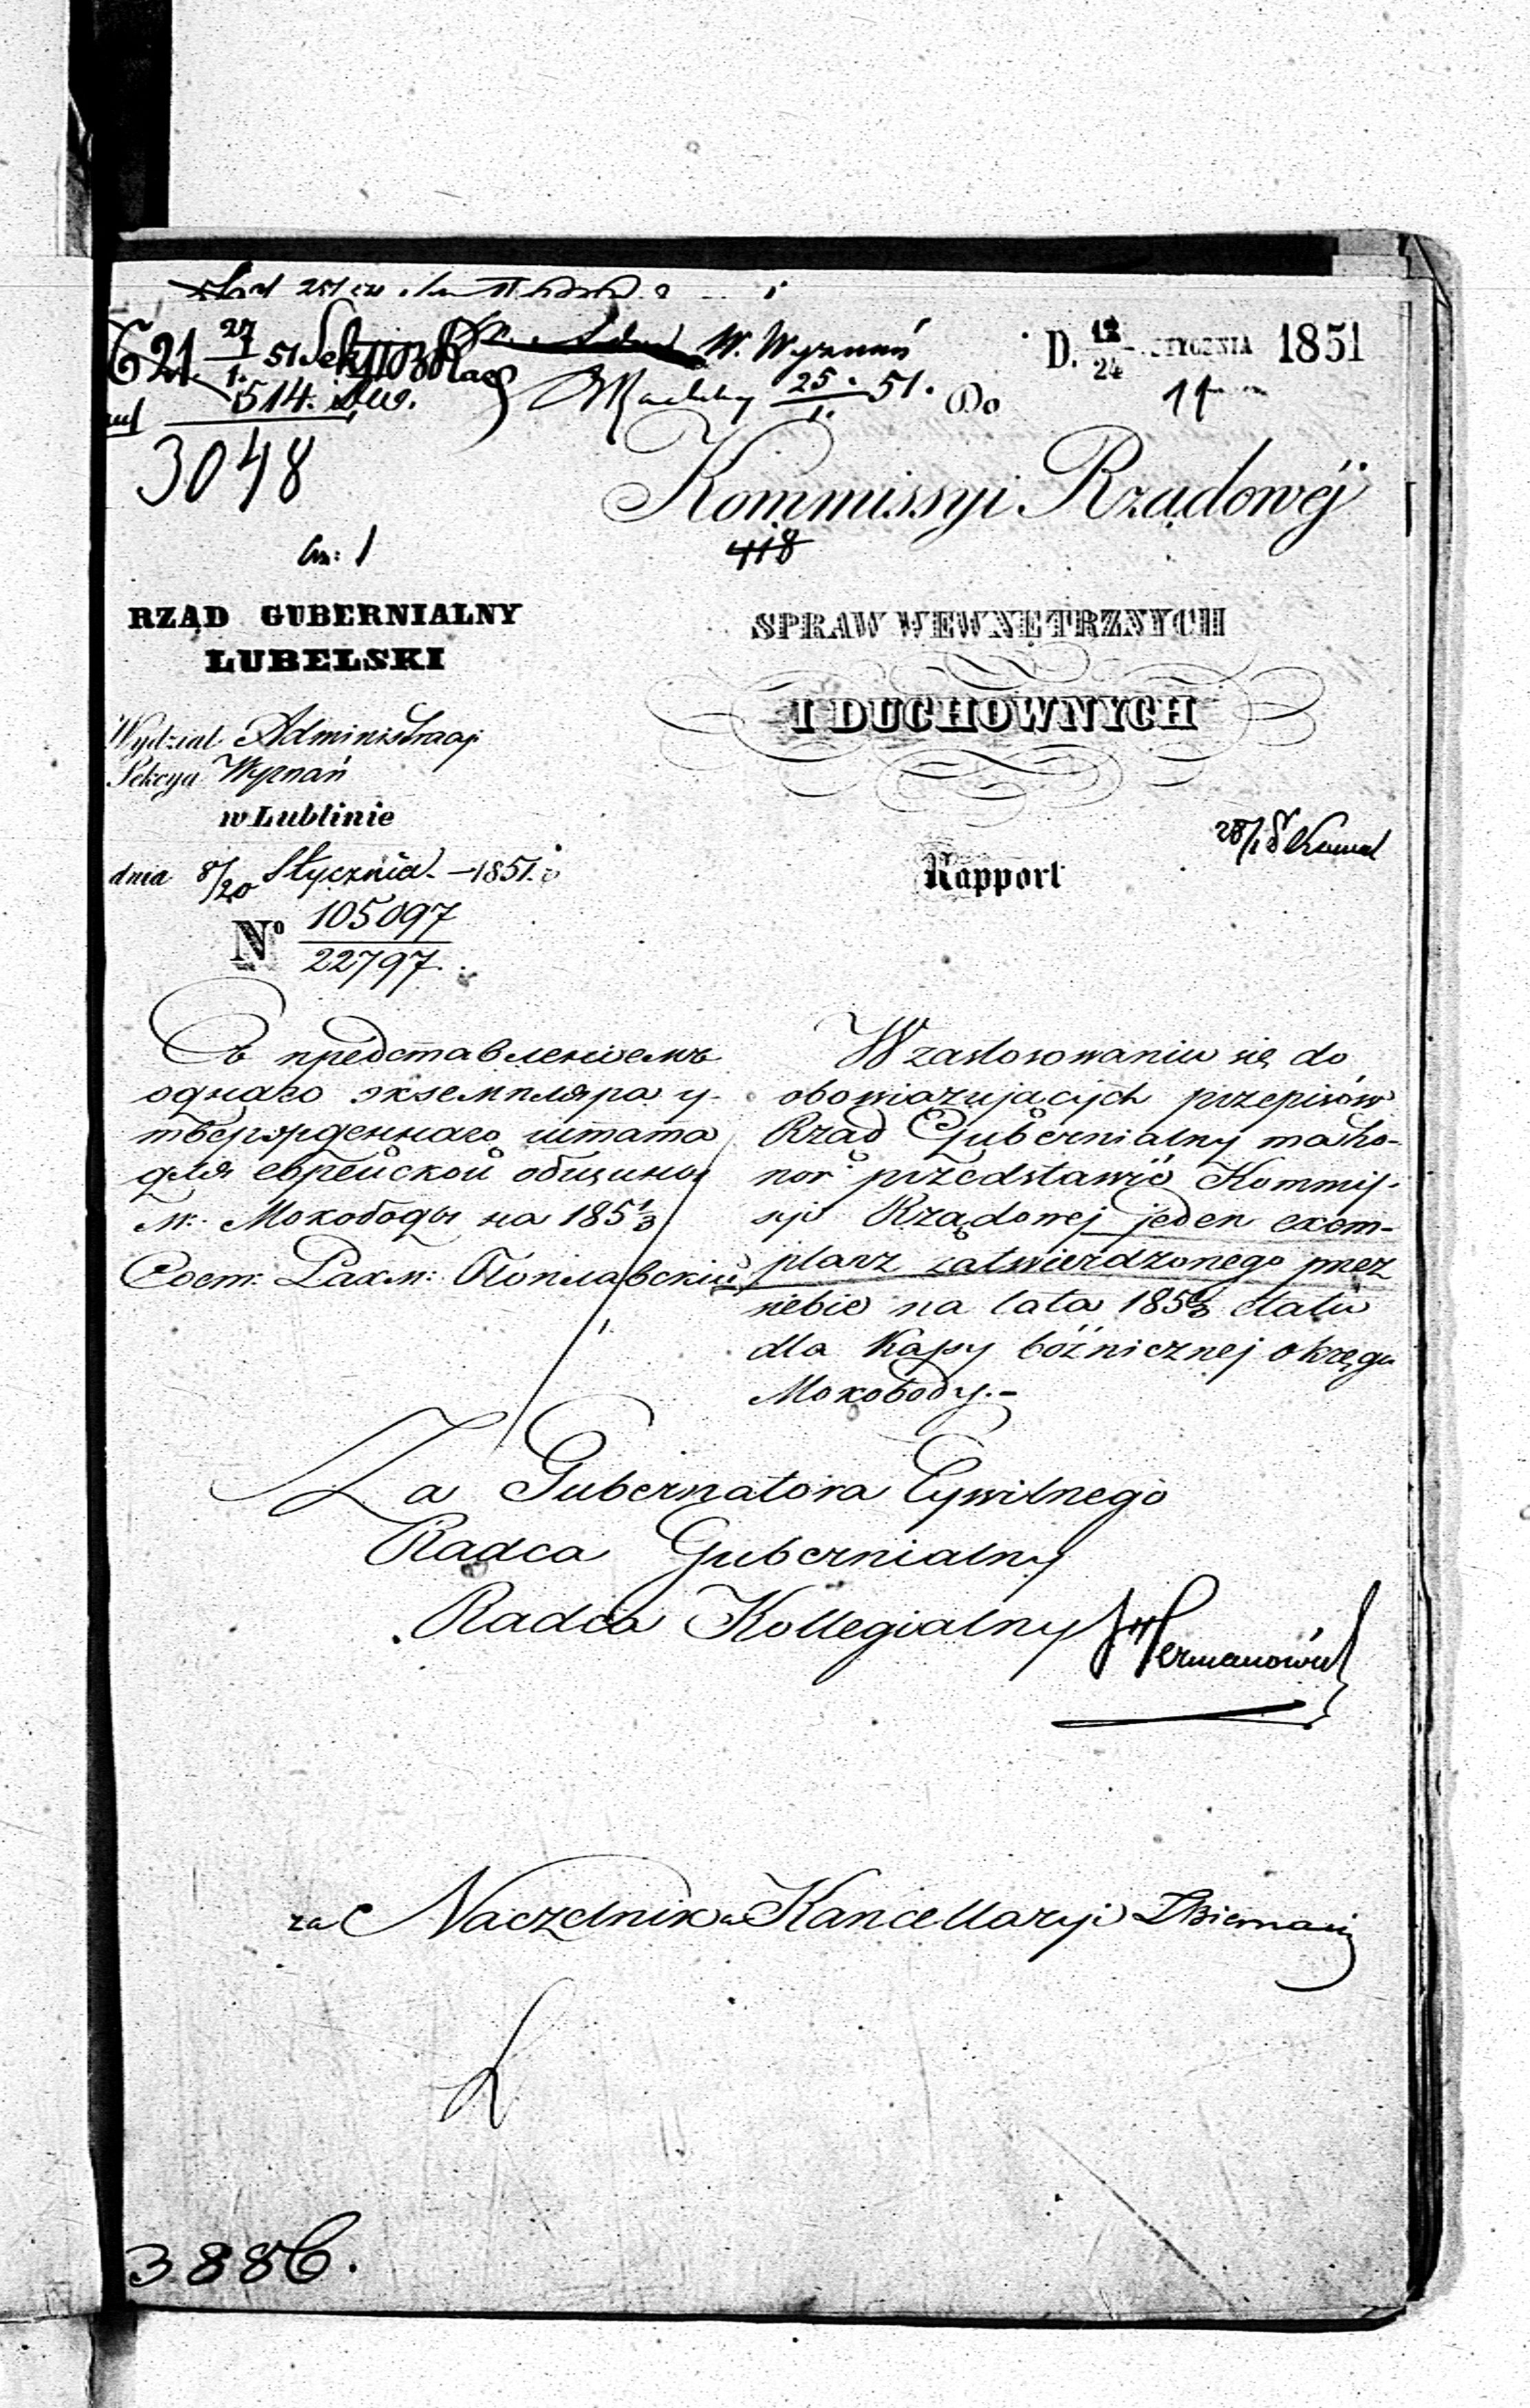 W. Wyznań
D. 12/24 STYCZNIA 1851
621 27/1 51
514.
25/1. 51. Do
3048
Kommissyi Rządowéj
418
RZĄD GUBERNIALNY
LUBELSKI
SPRAW WEWNĘTRZNYCH
I DUCHOWNYCH
Wydział Administracyi
Sekcya Wyznań
w Lublinie
dnia 8/20 Stycznia 1851.
Rapport
Nº 105097/22797.
Съ представленіемъ
однаго экземпляра у-
твержденнаго штата
для еврейской общины
м: Мокободы на 185 1/3
Сост: Рахм: Поплавскій
W zastosowaniu się do
obowiązujących przepisów
Rząd Gubernialny ma ho-
nor przedstawić Kommis-
syi Rządowej jeden exem-
plarz zatwierdzonego przez
siebie na lata 185 1/3 etatu
dla Kassy bóżnicznej okręgu
Mokobody.-
Za Gubernatora Cywilnego
Radca Gubernialny
Radca Kollegialny Hermanowicz
za Naczelnika Kancellaryi
3886.